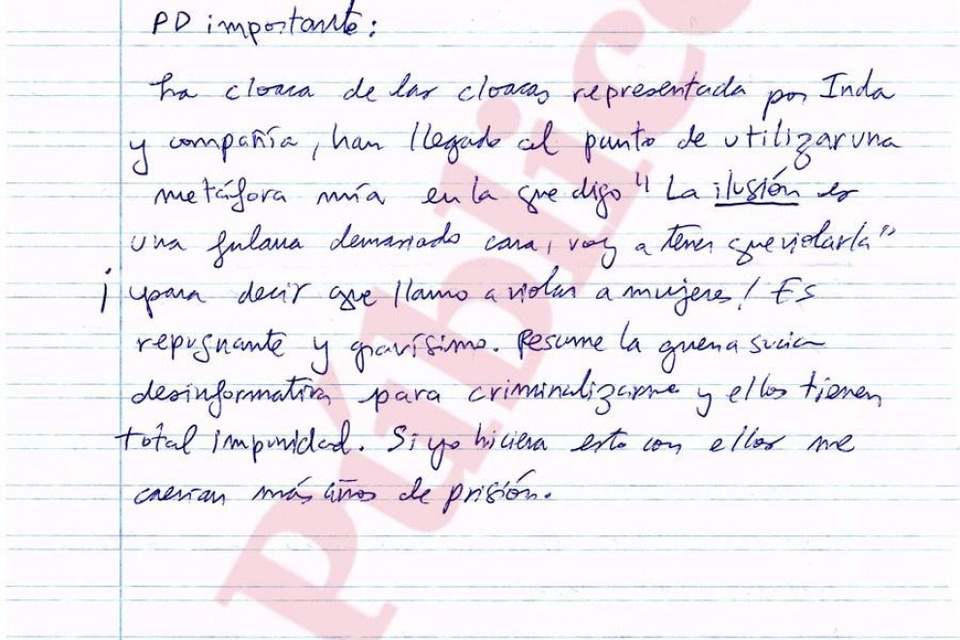 PD importante:
La cloaca de las cloacas representada por Inda
y compañía, han llegado al punto de utilizar una
metáfora mía en la que digo "La ilusión es
una fulana demasiado cara, voy a tener que violarla"
¡ y para decir que llamo a violar a mujeres! Es
repugnante y gravísimo. Resume la guerra sucia
desinformativa para criminalizarme y ellos tienen
total impunidad. Si yo hiciera esto con ellos me
caerían más años de prisión.
Público